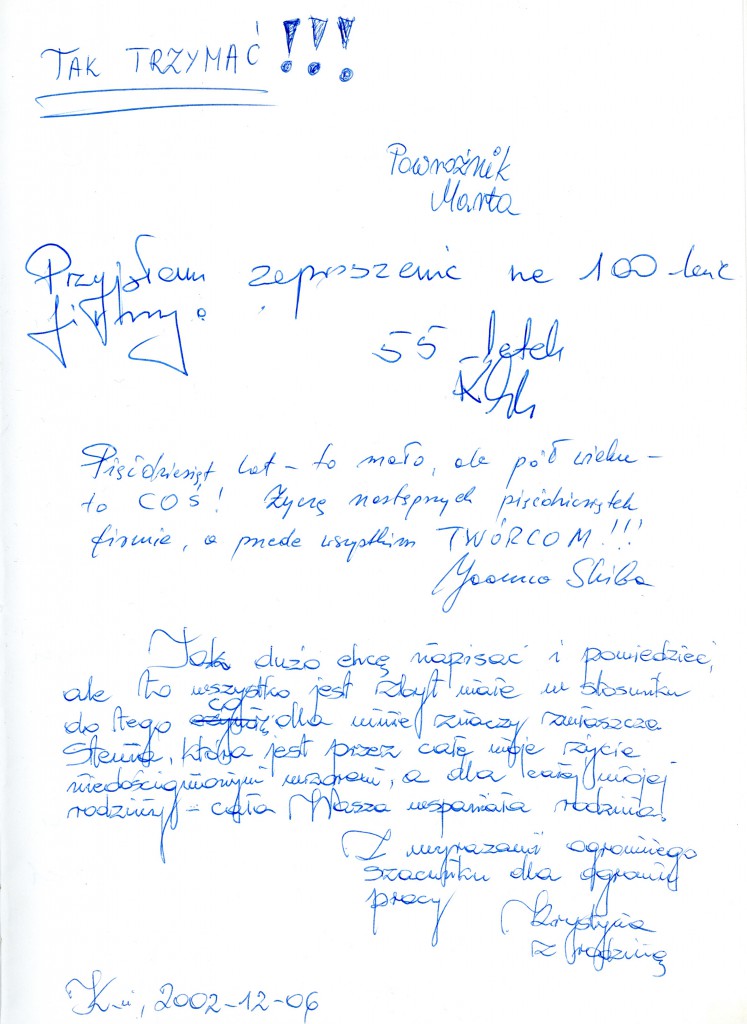 TAK TRZYMAĆ !!!
Powroźnik
Marta
Przyjdłam zaproszenie na 100 lecie
firmy.
55 latek
Pięćdziesiąt lat – to mało, ale pół wieku –
to COŚ! Życzę następnych pięćdziesiątek
firmie, a przede wszystkim TWÓRCOM!!!
Joanna Skiba
Tak dużo chcę napisać i powiedzieć,
ale to wszystko jest zbyt małe w stosunku
do tego co dla mnie znaczy zwłaszcza
Stenia, która jest przez całe moje życie
niedoścignionym wzorem, a dla całej mojej
rodziny – cała Wasza wspaniała rodzina.
Z wyrazami ogromnego
szacunku dla ogromu
pracy
Krystyna
z rodziną
K-ń, 2002-12-06